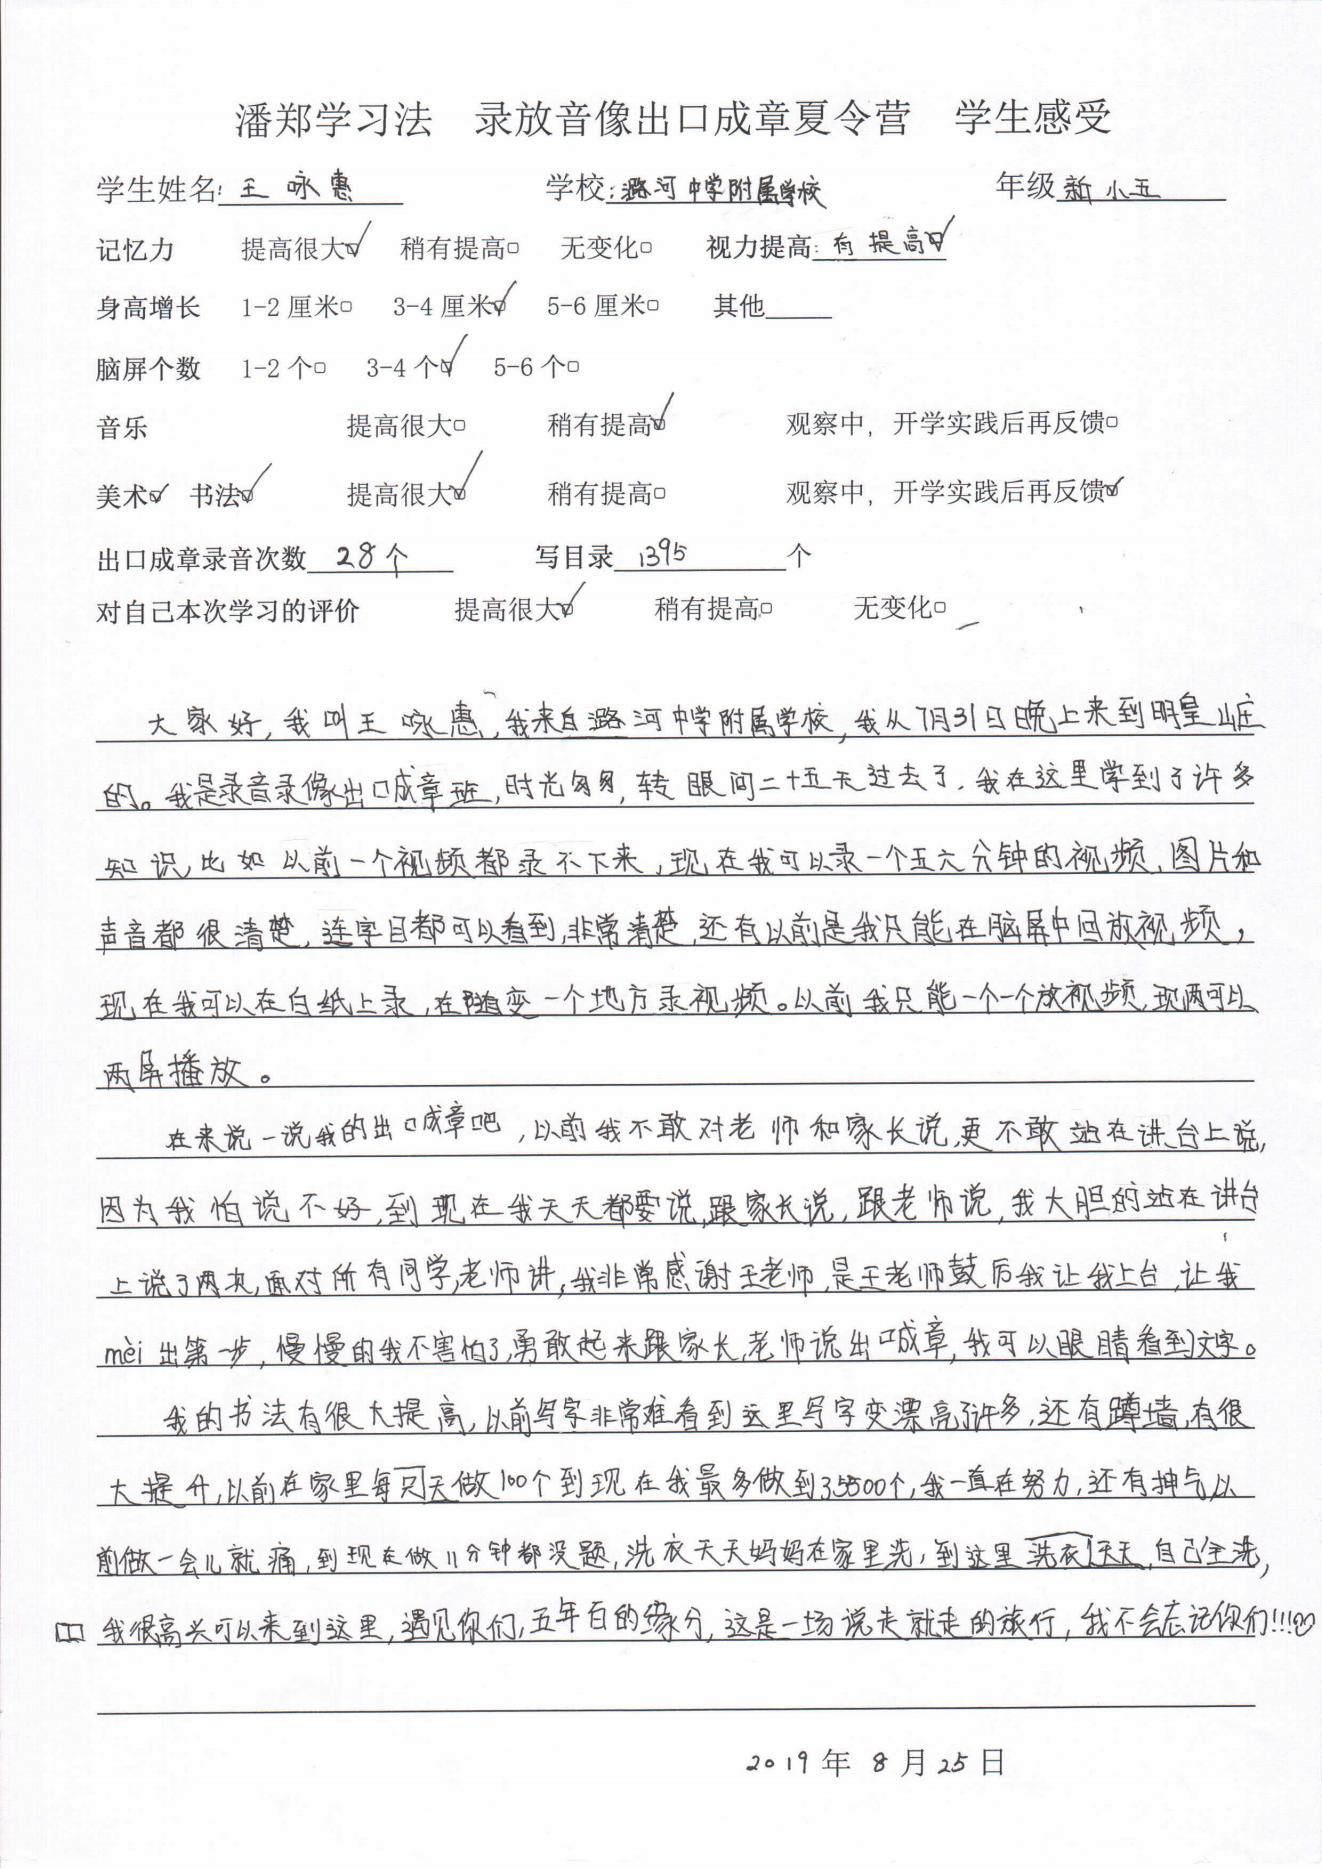 潘郑学习法 录放音像出口成章夏令营 学生感受
学生姓名:王咏惠 学校:潞河中学附属学校 年级 新小五
记忆力 提高很大☑ 稍有提高□ 无变化□ 视力提高:有提高☑
身高增长 1-2厘米□ 3-4厘米☑ 5-6厘米□ 其他
脑屏个数 1-2个□ 3-4个☑ 5-6个□
音乐 提高很大□ 稍有提高☑ 观察中，开学实践后再反馈□
美术☑ 书法☑ 提高很大☑ 稍有提高□ 观察中，开学实践后再反馈☑
出口成章录音次数 28个 写目录 1395 个
对自己本次学习的评价 提高很大☑ 稍有提高□ 无变化□
大家好，我叫王咏惠，我来自潞河中学附属学校，我从7月31日晚上来到明皇山庄
的。我是录音录像出口成章班，时光匆匆，转眼间二十五天过去了．我在这里学到了许多
知识，比如以前一个视频都录不下来，现在我可以录一个五六分钟的视频，图片和
声音都很清楚，连字目都可以看到，非常清楚，还有以前是我只能在脑屏中回放视频，
现在我可以在白纸上录，在随变一个地方录视频。以前我只能一个一个放视频，现两可以
两屏播放。
在来说一说我的出口成章吧，以前我不敢对老师和家长说，更不敢站在讲台上说，
因为我怕说不好，到现在我天天都要说，跟家长说，跟老师说，我大胆的站在讲台
上说了两次，面对所有同学，老师讲，我非常感谢王老师，是王老师鼓后我让我上台，让我
mèi出第一步，慢慢的我不害怕了，勇敢起来跟家长，老师说出口成章，我可以眼睛看到文字。
我的书法有很大提高，以前写字非常难看到这里写字变漂亮了许多，还有蹲墙，有很
大提升，以前在家里每只天做100个到现在我最多做到35500个，我一直在努力，还有抻气以
前做一会儿就痛，到现在做11分钟都没题，洗衣天天妈妈在家里洗，到这里洗衣天天，自己洗，
我很高兴可以来到这里，遇见你们，五年百的缘分，这是一场说走就走的旅行，我不会忘记你们!!!
2019年8月25日